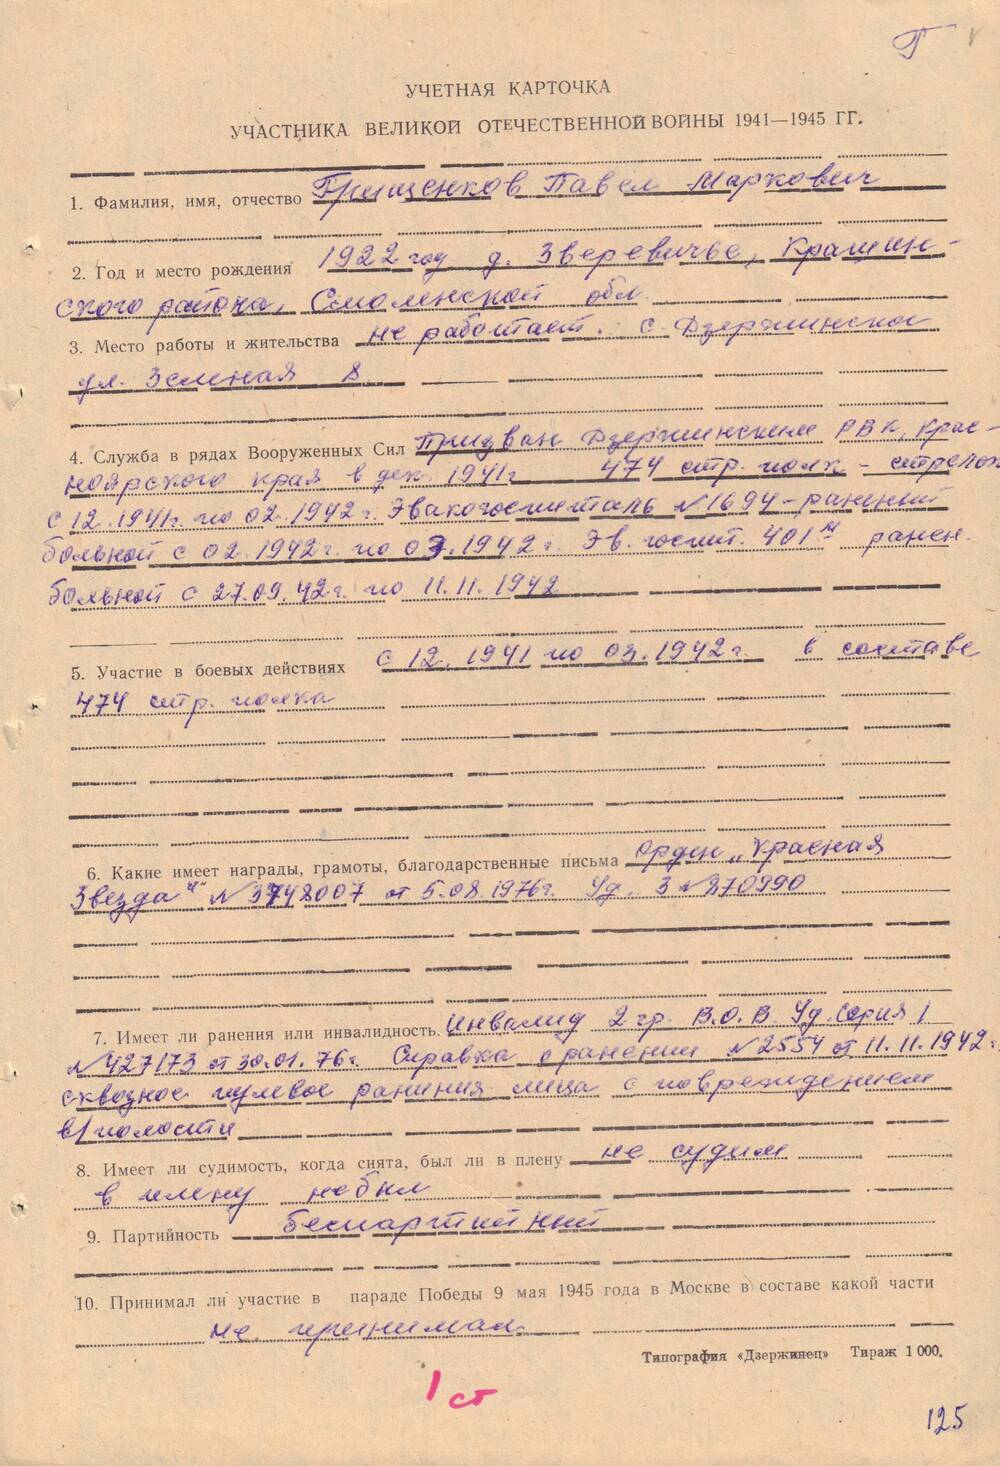 Г
УЧЕТНАЯ КАРТОЧКА
УЧАСТНИКА ВЕЛИКОЙ ОТЕЧЕСТВЕННОЙ ВОЙНЫ 1941—1945 ГГ.
1. Фамилия, имя, отчество Грищенков Павел Маркович
2. Год и место рождения 1922 год д. Зверевичье, Крашин-
ского района, Смоленской обл.
3. Место работы и жительства не работает. с. Дзержинское
ул. Зеленая 8
4. Служба в рядах Вооруженных Сил Призван Дзержинским РВК, Крас-
ноярского края в дек. 1941г 474 стр. полк - стрелок
с 12.1941г. по 02.1942г. Эвакогоспиталь №1694 - раненый
больной с 02.1942г. по 03.1942г. Эв. госпит. 401й ранен.
больной с 27.09.42г. по 11.11.1942
5. Участие в боевых действиях с 12.1941 по 03.1942г. в составе
474 стр. полка
6. Какие имеет награды, грамоты, благодарственные письма Орден „Красная
Звезда" №3748007 от 5.08.1976г. Уд. З №870990
7. Имеет ли ранения или инвалидность. Инвалид 2 гр. В.О.В. Уд. Серия I
№427173 от 30.01.76г. Справка о ранении №2554 от 11.11.1942г.
сквозное пулевое ранения лица с повреждением
в/полости
8. Имеет ли судимость, когда снята, был ли в плену не судим
в плену небыл
9. Партийность Беспартийный
10. Принимал ли участие в параде Победы 9 мая 1945 года в Москве в составе какой части
не принимал
Типография «Дзержинец» Тираж 1 000.
1 ст
125